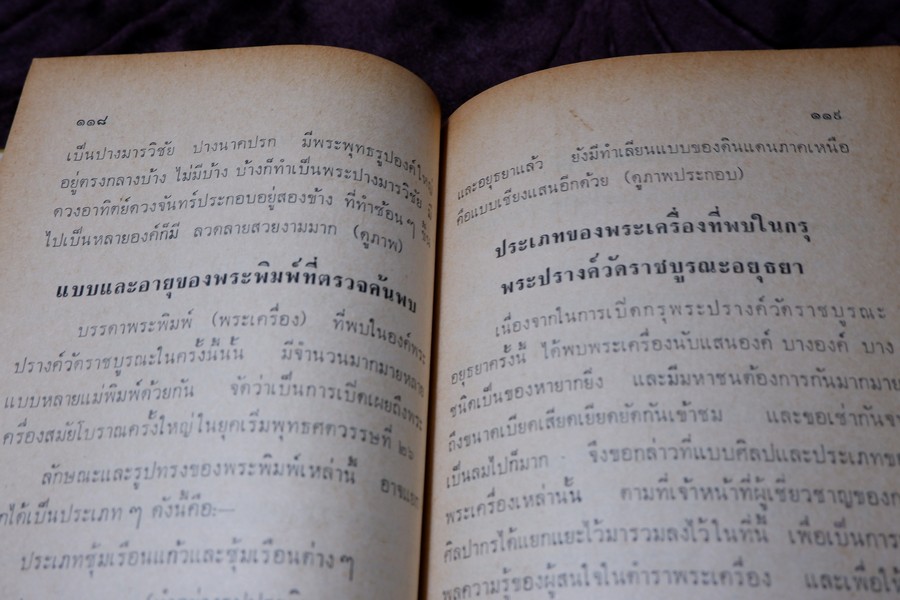 ๑๑๘
เป็นปางมารวิชัย ปางนาคปรก มีพระพุทธรูปองค์ใหญ่
อยู่ตรงกลางบ้าง ไม่มีบ้าง บ้างก็ทำเป็นพระปางมารวิชัย มี
ดวงอาทิตย์ดวงจันทร์ประกอบอยู่สองข้าง ที่ทำซ้อน ๆ ขึ้น
ไปเป็นหลายองค์ก็มี ลวดลายสวยงามมาก (ดูภาพ)
แบบและอายุของพระพิมพ์ที่ตรวจค้นพบ
บรรดาพระพิมพ์ (พระเครื่อง) ที่พบในองค์พระ
ปรางค์วัดราชบูรณะในครั้งนี้นั้น มีจำนวนมากมายหลาย
แบบหลายแม่พิมพ์ด้วยกัน จัดว่าเป็นการเปิดเผยถึงพระ
ครื่องสมัยโบราณครั้งใหญ่ในยุคเริ่มพุทธศตวรรษที่ ๒๖
ลักษณะและรูปทรงของพระพิมพ์เหล่านี้ อาจแยก
กได้เป็นประเภท ๆ ดังนี้คือ:—
ประเภทซุ้มเรือนแก้วและซุ้มเรือนต่าง ๆ
๑๑๙
และอยุธยาแล้ว ยังมีทำเลียนแบบของดินแดนภาคเหนือ
คือแบบเชียงแสนอีกด้วย (ดูภาพประกอบ)
ประเภทของพระเครื่องที่พบในกรุ
พระปรางค์วัดราชบูรณะอยุธยา
เนื่องจากในการเปิดกรุพระปรางค์วัดราชบูรณะ
อยุธยาครั้งนี้ ได้พบพระเครื่องนับแสนองค์ บางองค์ บาง
ชนิดเป็นของหายากยิ่ง และมีมหาชนต้องการกันมากมาย
ถึงขนาดเบียดเสียดเยียดยัดกันเข้าชม และขอเช่ากันจน
เป็นลมไปก็มาก จึงขอกล่าวที่แบบศิลปและประเภทข
พระเครื่องเหล่านั้น ตามที่เจ้าหน้าที่ผู้เชี่ยวชาญของก
ศิลปากรได้แยกแยะไว้มารวมลงไว้ในที่นี้ เพื่อเป็นการ
พูลความรู้ของผู้สนใจในตำราพระเครื่อง และเพื่อให้